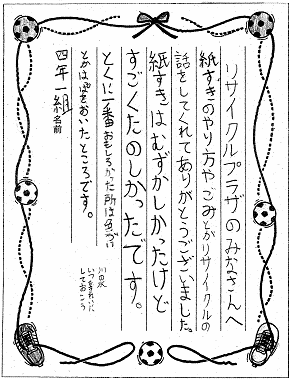 リサイクルプラザのみなさんへ
紙すきのやり方やごみとかリサイクルの
話をしてくれてありがとうございました。
紙すきはむずかしかったけど
すごくたのしかったです。
とくに一番おもしろかった所は色づい
とかは
をおいたところです。
四年一組名前
いつもきれいに
しておこう